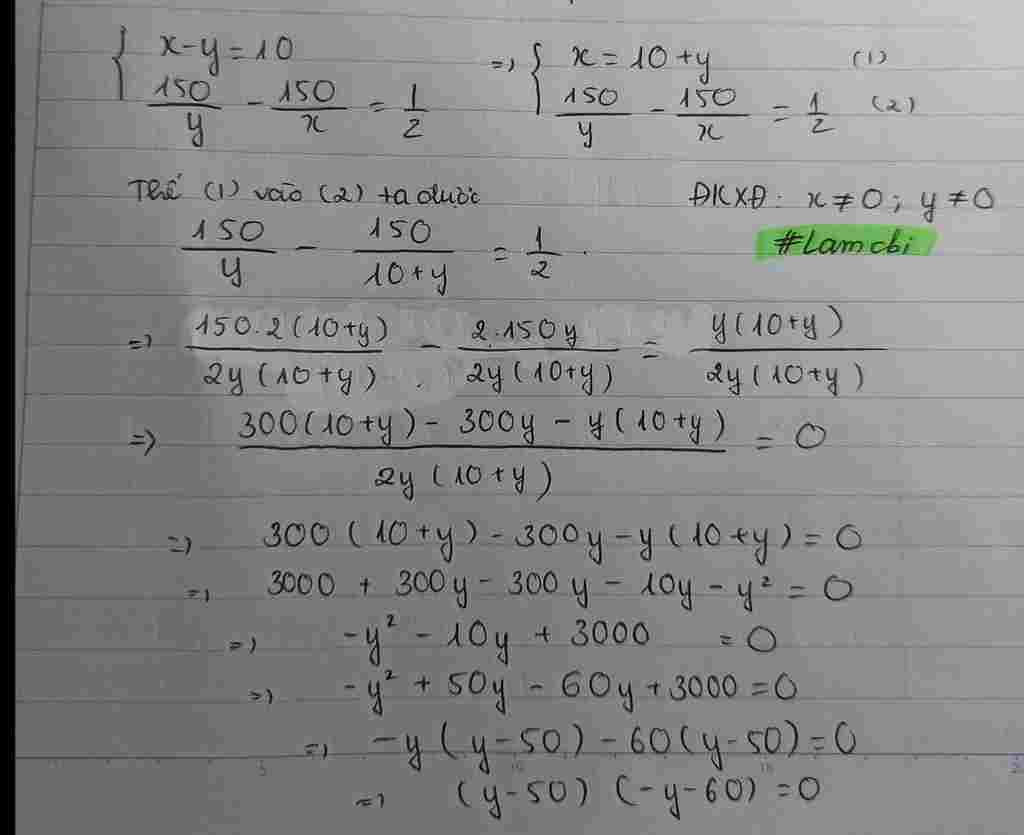 { x-y=10 => { x=10+y (1)
150/y - 150/x = 1/2 150/y - 150/x = 1/2 (2)
Thế (1) vào (2) ta được ĐKXĐ: x≠0; y≠0
150/y - 150/(10+y) = 1/2 . #Lamcbi
=> 150.2(10+y)/2y(10+y) - 2.150y/2y(10+y) = y(10+y)/2y(10+y)
=> (300(10+y) - 300y - y(10+y))/2y(10+y) = 0
=> 300(10+y) - 300y - y(10+y) = 0
=> 3000 + 300y - 300y - 10y - y² = 0
=> -y² - 10y + 3000 = 0
=> -y² + 50y - 60y + 3000 = 0
=> -y(y-50) - 60(y-50) = 0
=> (y-50) (-y-60) = 0